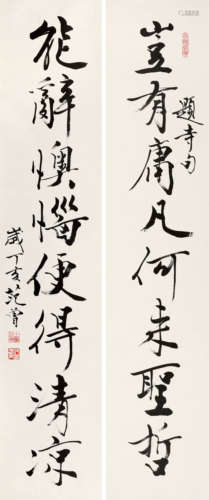 豈有庸凡何來聖哲
題寺句
能辭懊惱便得清涼
歲丁亥范曾